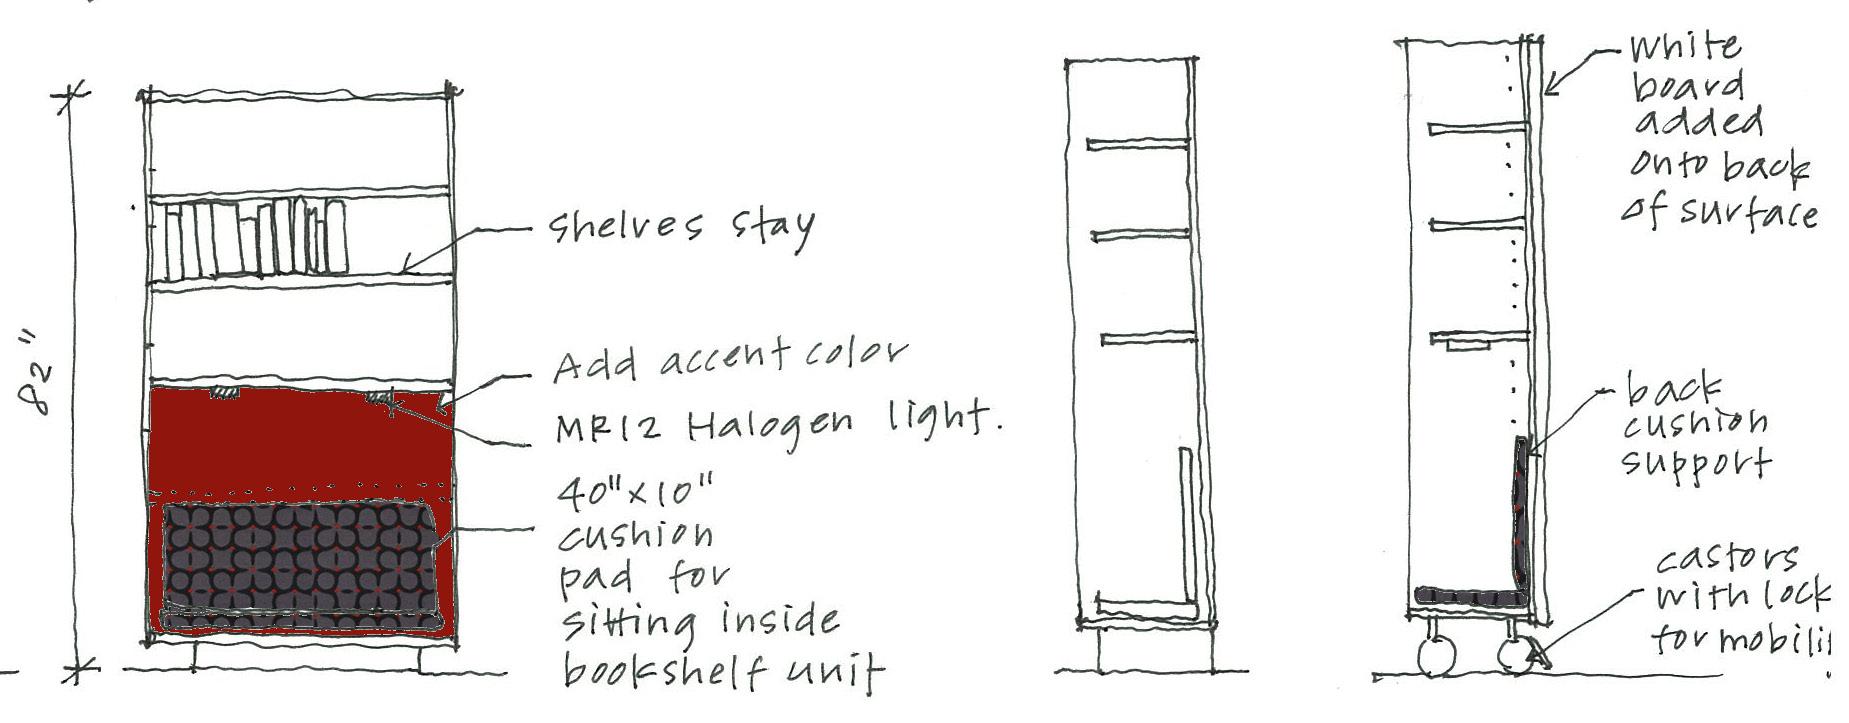 82"
shelves stay
Add accent color
MR12 Halogen light.
40"x10"
cushion
pad for
sitting inside
bookshelf unit
white
board
added
onto back
of surface
back
cushion
support
castors
with lock
for mobili